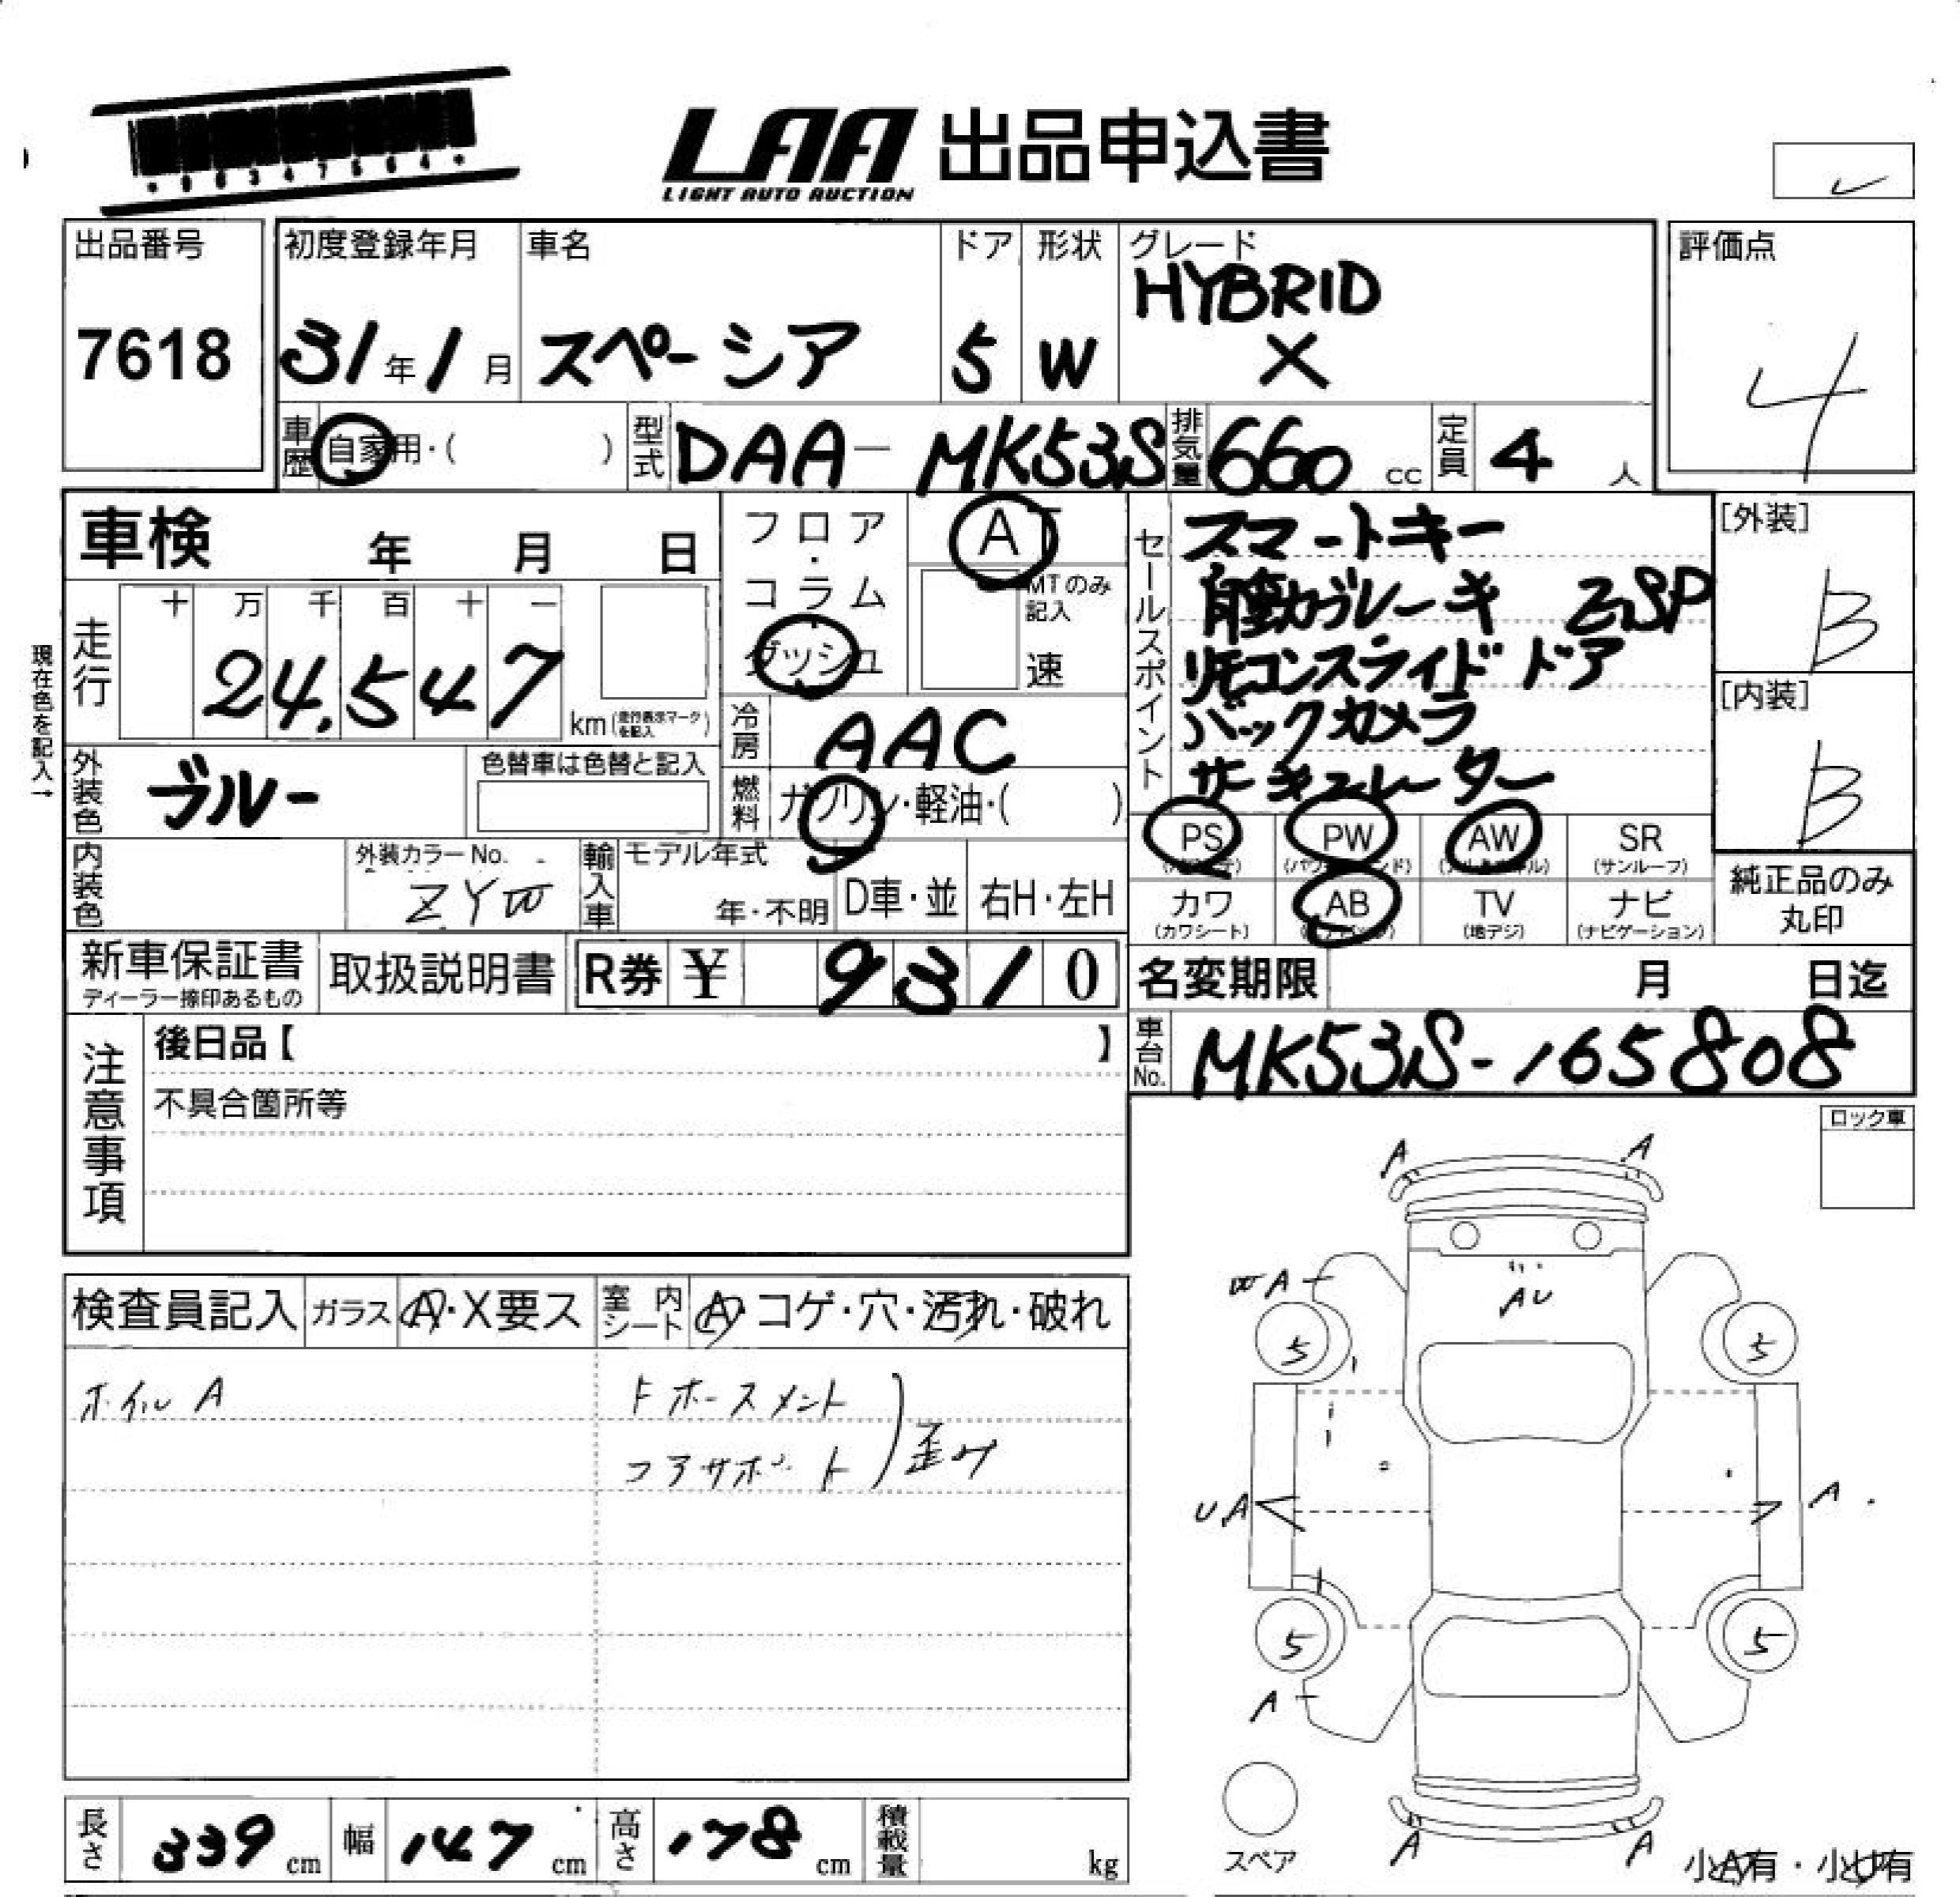 LAA 出品申込書
LIGHT AUTO AUCTION
出品番号
7618
初度登録年月
31年1月
車名
スペーシア
ドア
5
形状
W
グレード
HYBRID
X
評価点
4
車歴
自家用・( )
型式
DAA-MK53S
排気量
660 cc
定員
4 人
車検 年 月 日
フロア・コラム
ダッシュ
AT
MTのみ記入
速
セールスポイント
スマートキー
自動ブレーキ ESP
リモコンスライドドア
バックカメラ
サーキュレーター
[外装]
B
[内装]
B
現在色を記入→
走行
十 万 千 百 十 一
24,547
km(走行表示マークを記入)
冷房
AAC
外装色
ブルー
色替車は色替と記入
燃料
ガソリン・軽油・( )
PS PW AW SR
(サンルーフ)
カワ AB TV ナビ
(カワシート) (地デジ) (ナビゲーション)
純正品のみ
丸印
内装色
外装カラーNo.
輸入車
モデル年式
年・不明
D車・並
右H・左H
新車保証書
ディーラー捺印あるもの
取扱説明書
R券 ¥ 9310
名変期限 月 日迄
注意事項
後日品【 】
不具合箇所等
車台No.
MK53S-165808
ロック車
検査員記入
ガラス
A・X要ス
室内シート
A・コゲ・穴・汚れ・破れ
ホイルA
Fホースメント
コアサポート
歪み
A A
A
AU
5 5
UA A
5 5
A
スペア
A A
小A有・小U有
長さ 339 cm
幅 147 cm
高さ 178 cm
積載量 kg